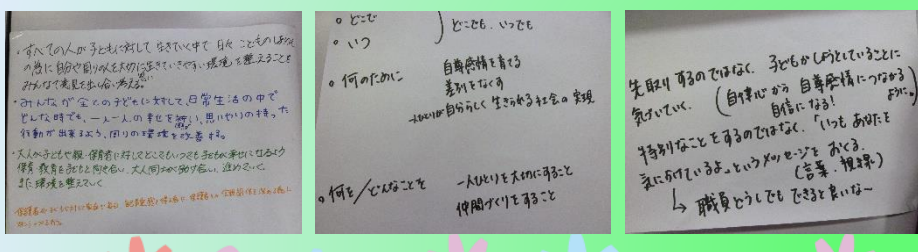 ・すべての人が子どもに対して生きていく中で 日々 こどものしあわせ
の為に自分や周りの人を大切に生きていきやすい環境を整えることを
みんなで意見を出し合い考える。
・みんなが全ての子どもに対して、日常生活の中で
どんな時でも、一人一人の幸せを願い、思いやりの持った
行動が出来るよう、周りの環境を改善する。
・大人が子どもや親・保育者に対してどこでもいつでも子どもが幸せになるよう
保育・教育を子どもと向き合い、大人同士が助け合い、進めていく。
また環境を整えていく
。どこで
。いつ
どこでも、いつでも
。何のために
自尊感情を育てる
差別をなくす
一人ひとりが自分らしく生きられる社会の実現
。何を/どんなことを
一人ひとりを大切にすること
仲間づくりをすること
先取りするのではなく、子どもがしようとしていることに
気づいていく。
(自律心から自尊感情につながる
自信になる!ように。)
特別なことをするのではなく、「いつもあなたを
気にかけているよ。」というメッセージをおくる。
(言葉、視線)
↳ 職員どうしでもできると良いな〜